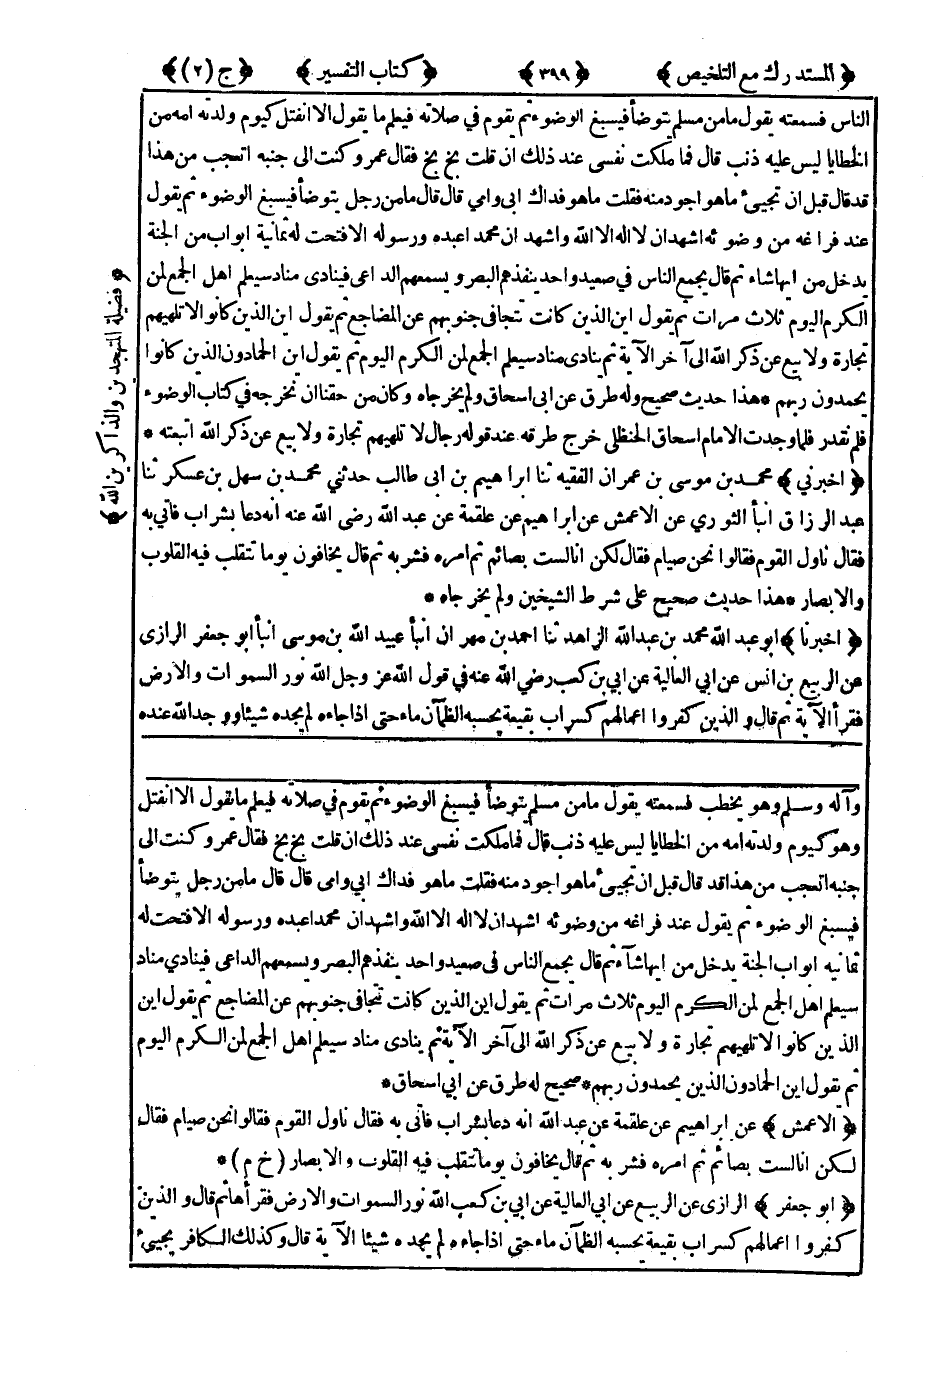 ﴿ المستدرك مع التلخيص ﴾ ﴿ ٣٩٩ ﴾ ﴿ كتاب التفسير ﴾ ﴿ ج (٢) ﴾
الناس فسمعته يقول مامن مسلم يتوضأ فيسبغ الوضوء ثم يقوم في صلاته فيعلم ما يقول الا انفتل كيوم ولدته امه من
الخطايا ليس عليه ذنب قال فما ملكت نفسى عند ذلك ان قلت بخ بخ فقال عمر وكنت الى جنبه اتعجب من هذا
قد قال قبل ان تجيئ ماهو اجود منه فقلت ماهو فداك ابى وامي قال قال مامن رجل يتوضأ فيسبغ الوضوء ثم يقول
عند فراغه من وضوئه اشهد ان لا اله الا الله واشهد ان محمدا عبده ورسوله الا فتحت له ثمانية ابواب من الجنة
يدخل من ايها شاء ثم قال يجمع الناس في صعيد واحد ينفذهم البصر ويسمعهم الداعى فينادى مناد سيعلم اهل الجمع لمن
الكرم اليوم ثلاث مرات ثم يقول اين الذين كانت تتجافى جنوبهم عن المضاجع ثم يقول اين الذين كانوا لا تلهيهم
تجارة ولا بيع عن ذكر الله الى آخر الآية ثم ينادى مناد سيعلم الجمع لمن الكرم اليوم ثم يقول اين الحمادون الذين كانوا
يحمدون ربهم * هذا حديث صحيح وله طرق عن ابى اسحاق ولم يخرجاه وكان من حقنا ان نخرجه في كتاب الوضوء
فلم نقدر فلما وجدت الامام اسحاق الحنظلي خرج طرقه عند قوله رجال لا تلهيهم تجارة ولا بيع عن ذكر الله اتبعته *
﴿ اخبرني ﴾ محمد بن موسى بن عمران الفقيه ثنا ابراهيم بن ابى طالب حدثني محمد بن سهل بن عسكر ثنا
عبد الرزاق انبأ الثوري عن الاعمش عن ابراهيم عن علقمة عن عبد الله رضى الله عنه انه دعا بشراب فاتي به
فقال ناول القوم فقالوا نحن صيام فقال لكن انا لست بصائم ثم امره فشربه ثم قال يخافون يوما تتقلب فيه القلوب
والابصار * هذا حديث صحيح على شرط الشيخين ولم يخرجاه *
﴿ اخبرنا ﴾ ابو عبد الله محمد بن عبدالله الزاهد ثنا احمد بن مهران انبأ عبيد الله بن موسى انبأ ابو جعفر الرازى
عن الربيع بن انس عن ابي العالية عن ابي بن كعب رضي الله عنه في قول الله عز وجل الله نور السموات والارض
فقرأ الآية ثم قال والذين كفروا اعمالهم كسراب بقيعة يحسبه الظمآن ماء حتى اذا جاءه لم يجده شيئا ووجد الله عنده
﴿ فضيلة المتهجدين والذاكرين الله ﴾
وآله وسلم وهو يخطب فسمعته يقول مامن مسلم يتوضأ فيسبغ الوضوء ثم يقوم في صلاته فيعلم ما يقول الا انفتل
وهو كيوم ولدته امه من الخطايا ليس عليه ذنب قال فما ملكت نفسى عند ذلك ان قلت بخ بخ فقال عمر وكنت الى
جنبه اتعجب من هذا قد قال قبل ان تجيئ ماهو اجود منه فقلت ماهو فداك ابي وامى قال قال مامن رجل يتوضأ
فيسبغ الوضوء ثم يقول عند فراغه من وضوئه اشهد ان لا اله الا الله واشهد ان محمدا عبده ورسوله الا فتحت له
ثمانيه ابواب الجنة يدخل من ايها شآء ثم قال يجمع الناس فى صعيد واحد ينفذهم البصر ويسمعهم الداعى فينادي مناد
سيعلم اهل الجمع لمن الكرم اليوم ثلاث مرات ثم يقول اين الذين كانت تتجافى جنوبهم عن المضاجع ثم يقول اين
الذين كانوا لا تلهيهم تجارة ولا بيع عن ذكر الله الى آخر الآية ثم ينادى مناد سيعلم اهل الجمع لمن الكرم اليوم
ثم يقول اين الحمادون الذين يحمدون ربهم * صحيح له طرق عن ابي اسحاق *
﴿ الاعمش ﴾ عن ابراهيم عن علقمة عن عبد الله انه دعا بشراب فاتى به فقال ناول القوم فقالوا نحن صيام فقال
لكن انا لست بصائم ثم امره فشربه ثم قال يخافون يوما تتقلب فيه القلوب والابصار ( خ م ) *
﴿ ابو جعفر ﴾ الرازى عن الربيع عن ابي العالية عن ابي بن كعب الله نور السموات والارض فقرأها ثم قال والذين
كفروا اعمالهم كسراب بقيعة يحسبه الظمآن ماء حتى اذا جاءه لم يجده شيئا الآية قال وكذلك الكافر يجيئ